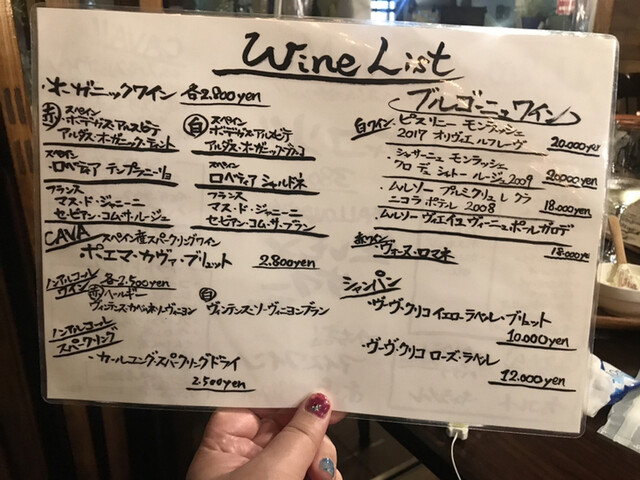 Wine List
・オーガニックワイン 各2.800yen
赤 スペイン
ボデガス・アルスピデ
アルダス・オーガニック・ティント
スペイン
ロペティア テンプラニーリョ
フランス
マス・ド・ジャニーニ
セ・ビアン・コム・サ・ルージュ
白 スペイン
ボデガス・アルスピデ
アルダス・オーガニック・ブランコ
スペイン
ロペティア シャルドネ
フランス
マス・ド・ジャニーニ
セ・ビアン・コム・サ・ブラン
CAVA スペイン産スパークリングワイン
・ポエマ・カヴァ・ブリュット 2.800yen
ノンアルコール
ワイン 各2.500yen
赤 ベルギー
ヴィンテンス・カベルネ・ソーヴィニヨン
白
ヴィンテンス・ソーヴィニヨンブラン
ノンアルコール
スパークリング
・カールユング・スパークリングドライ
2.500yen
ブルゴーニュワイン
白ワイン
・ピュリニー モンラッシェ
2017 オリヴィエ ルフレーヴ 20.000yen
・シャサーニュ モンラッシェ
クロ デュ シャトー 2009 20.000yen
・ムルソー プルミエ クリュ
ニコラ ポテル 2008 18.000yen
・ムルソー ヴィエイユ ヴィーニュ ポール ガロデ
18.000yen
赤ワイン
・ヴォーヌ・ロマネ
シャンパン
・ヴーヴ・クリコ イエローラベル・ブリュット
10.000yen
・ヴーヴ・クリコ ローズ・ラベル
12.000yen